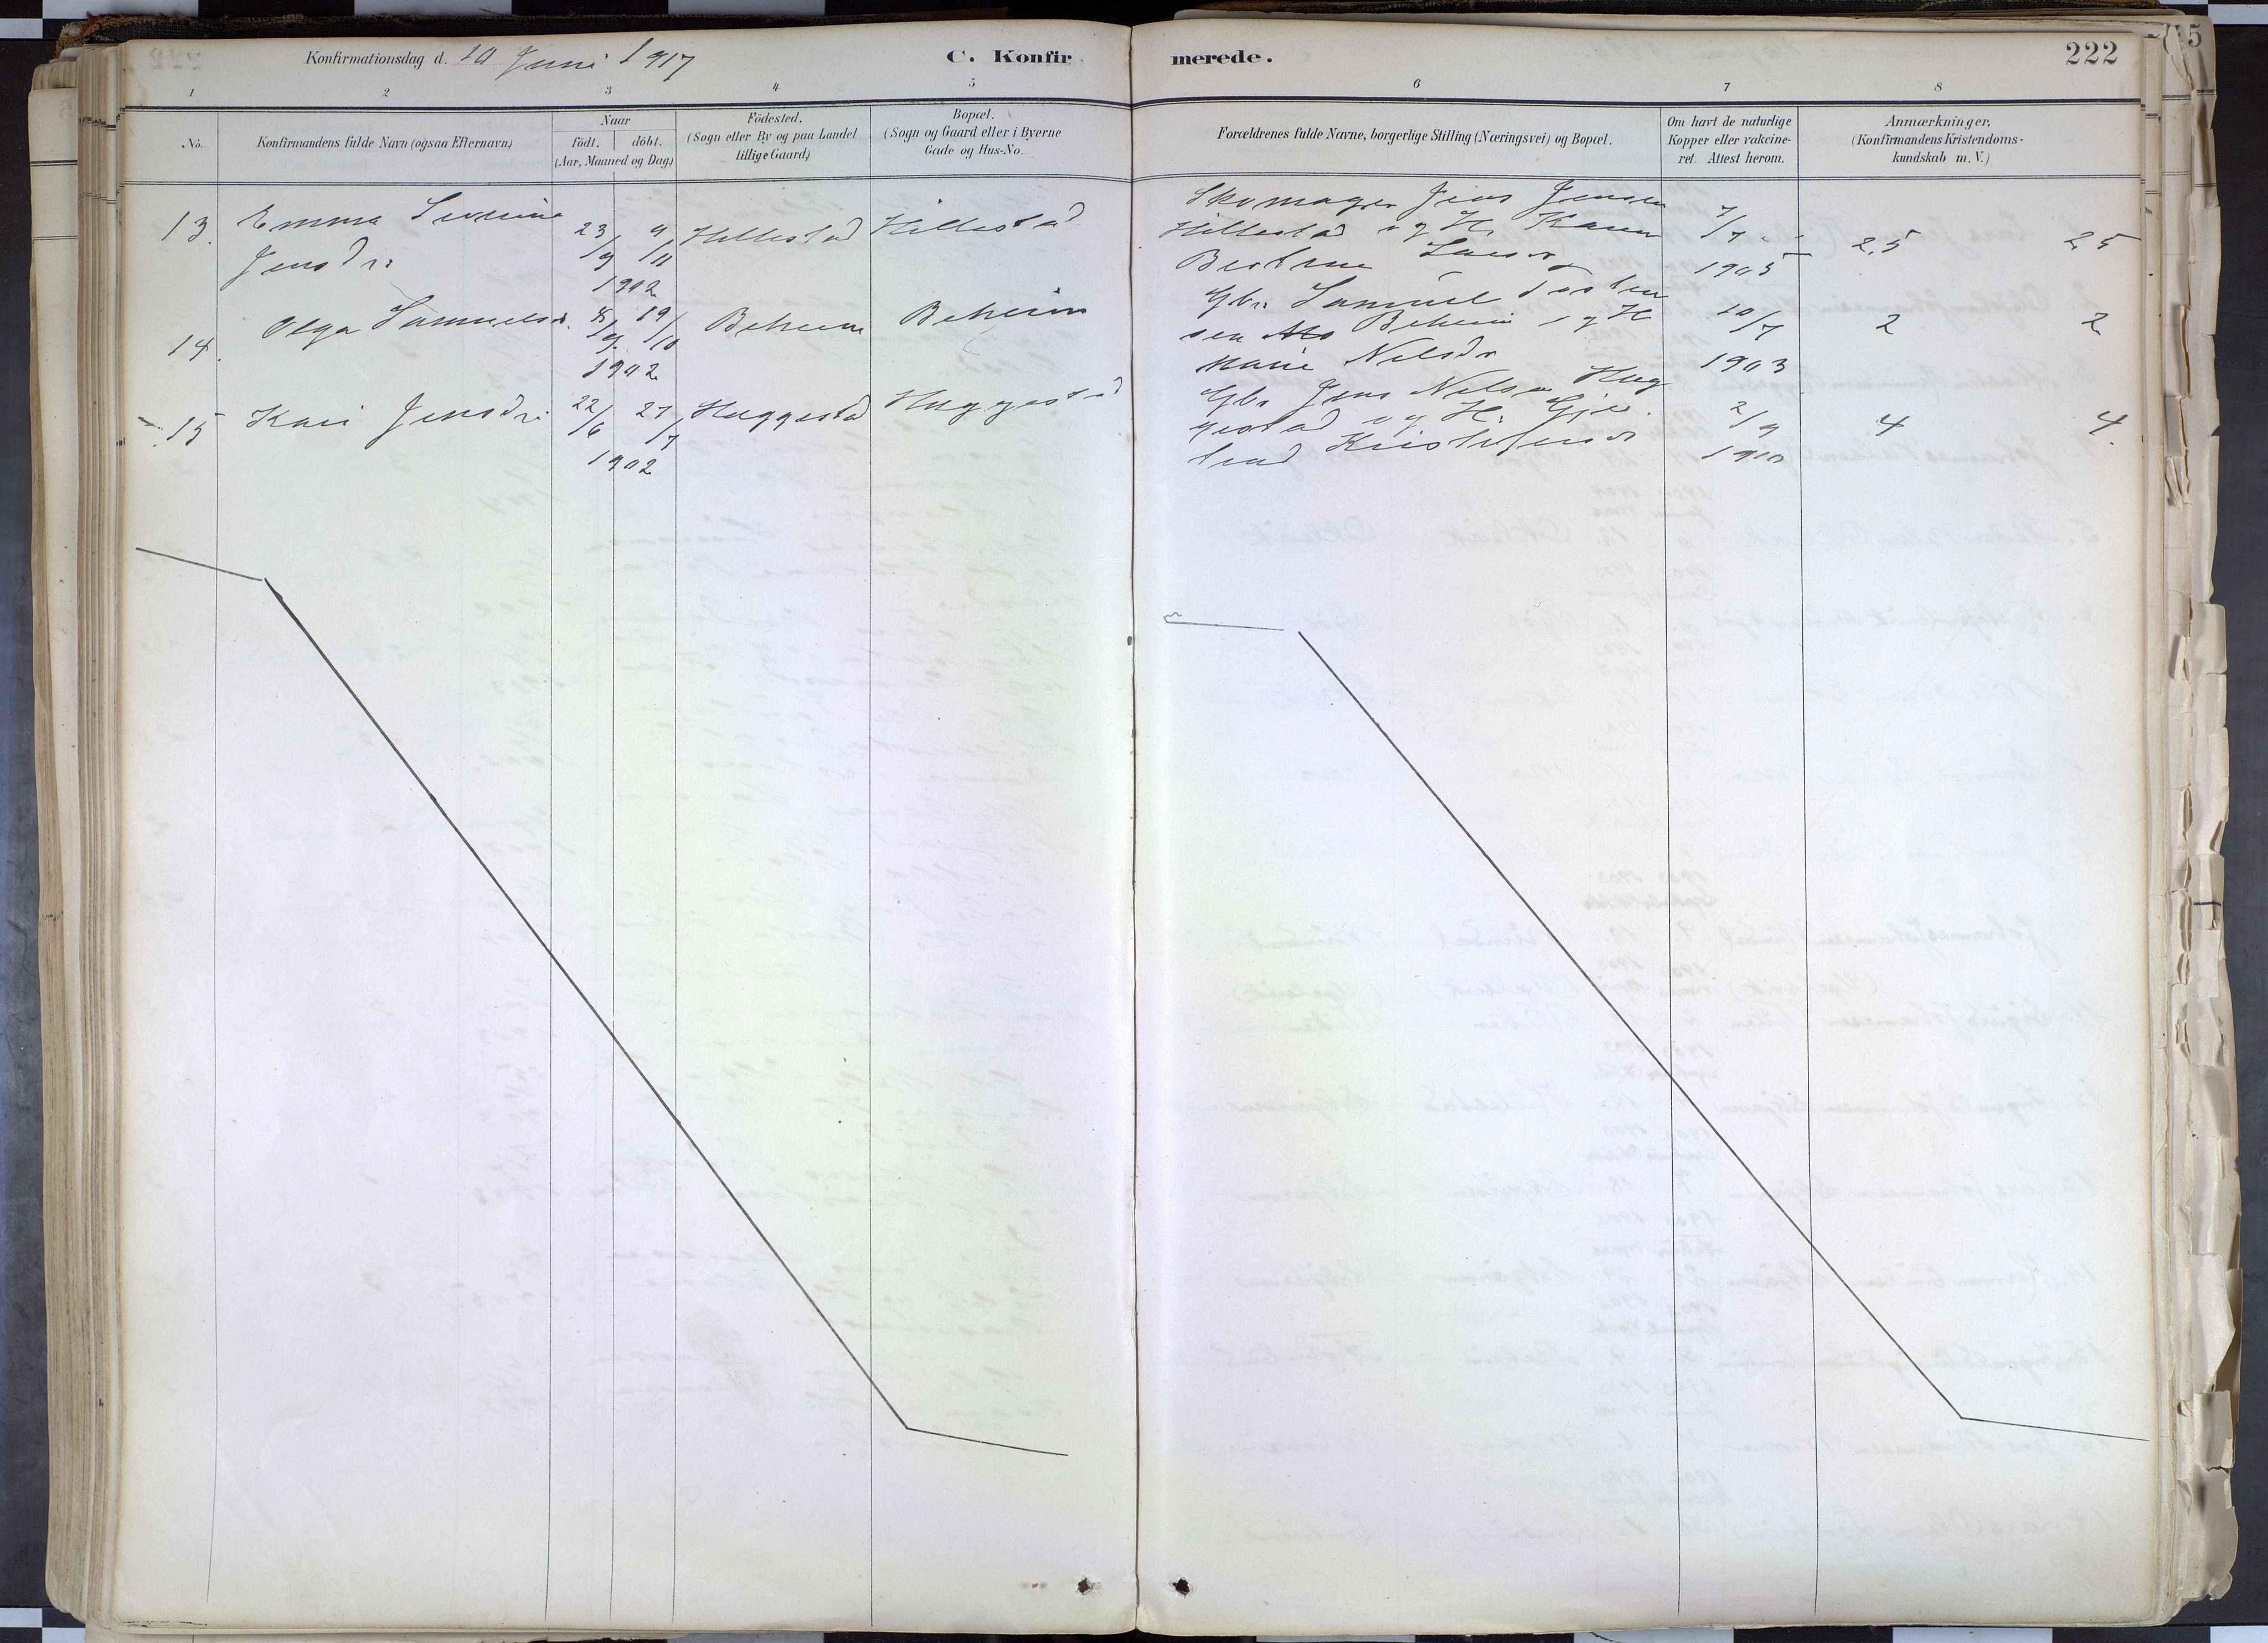 Konfirmationsdag d. 10 Juni 1917
C. Konfirmerede.
222
1 2 3 4 5 6 7 8
No.
Konfirmandens fulde Navn (ogsaa Efternavn)
Naar
födt. döbt.
(Aar, Maaned og Dag)
Födested.
(Sogn eller By og paa Landet
tillige Gaard)
Bopæl.
(Sogn og Gaard eller i Byerne
Gade og Hus-No.
Forældrenes fulde Navne, borgerlige Stilling (Næringsvei) og Bopæl.
Om havt de naturlige
Kopper eller vakcine-
ret. Attest herom.
Anmærkninger.
(Konfirmandens Kristendoms-
kundskab m. V.)
13. Emma Severine
Jensdr.
23/9 9/11
1902
Hillestad
Hillestad
Skomager Jens Jensen
Hillestad og H. Karen
Larsdr
7/7
1905
2.5
2.5
14. Olga Samuelsd.
19/10
1902
Beheim
Beheim
Gbr. Samuel Tosten
sen Beheim og H
Marie Nelsdr
10/7
1903
2
2
15 Kari Jensdr.
22/6 27/7
1902
Huggestad
Huggestad
Gbr Jens Nelsen Hug
gestad og H. Gje
trud Kristofersdr
2/9
1910
4
4.